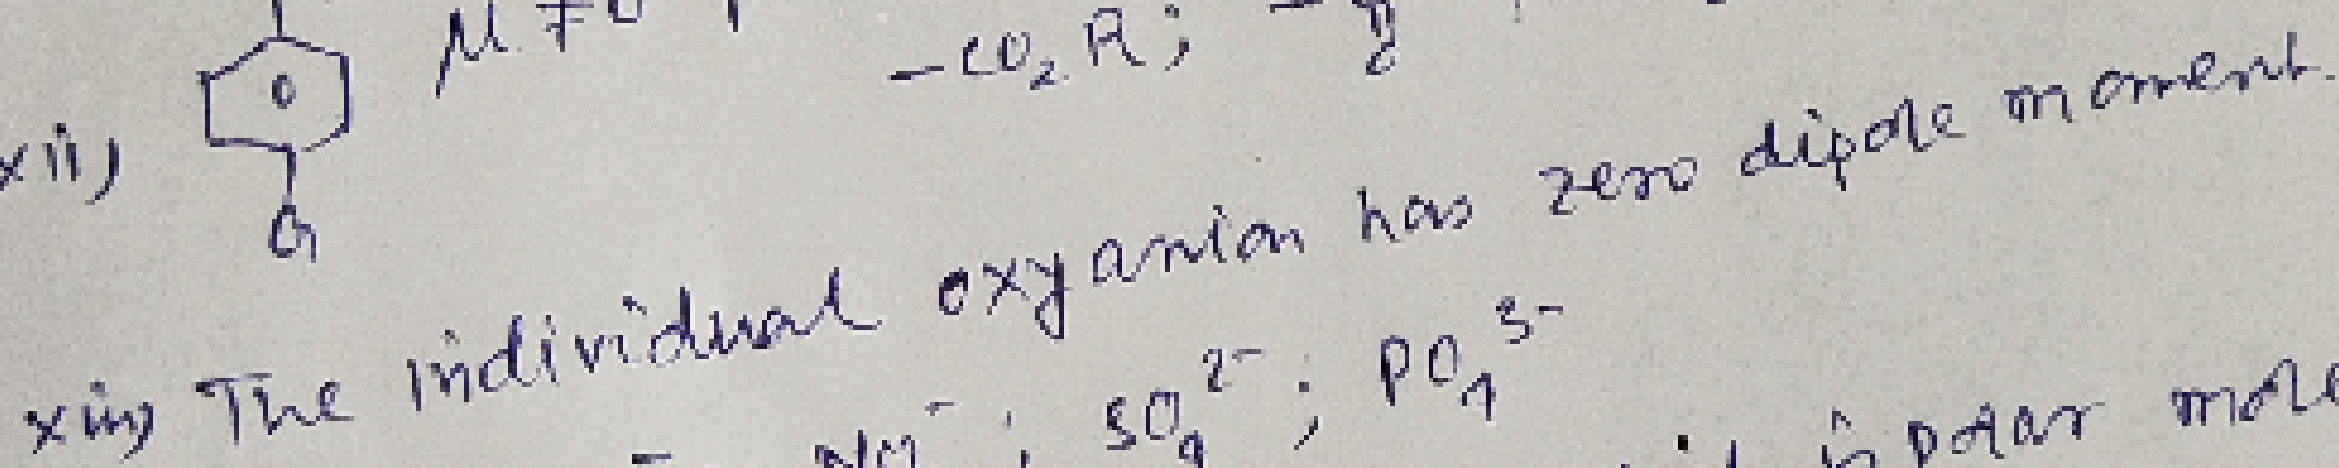 xii) G μ ≠ 0
-CO₂R;
xiii) The individual oxyanion has zero dipole moment.
SO₄²⁻; PO₄³⁻
polar